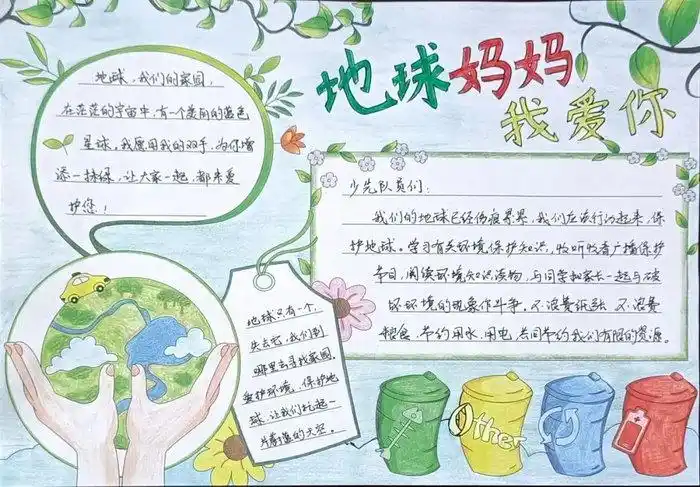 地球妈妈
我爱你
地球，我们的家园，
在茫茫的宇宙中，有一个美丽的蓝色
星球。我愿用我的双手，为你增
添一抹绿，让大家一起，都来爱
护您！
少先队员们：
我们的地球已经伤痕累累，我们应该行动起来，保
护地球。学习有关环境保护知识，收听收看广播保护
节目，阅读环境知识读物，与同学和家长一起与破
坏环境的现象作斗争。不浪费纸张，不浪费
粮食，节约用水、用电，共同节约我们有限的资源。
地球只有一个，
失去它，我们到
哪里去寻找家园，
爱护环境，保护地
球，让我们托起一
片蔚蓝的天空。
Other